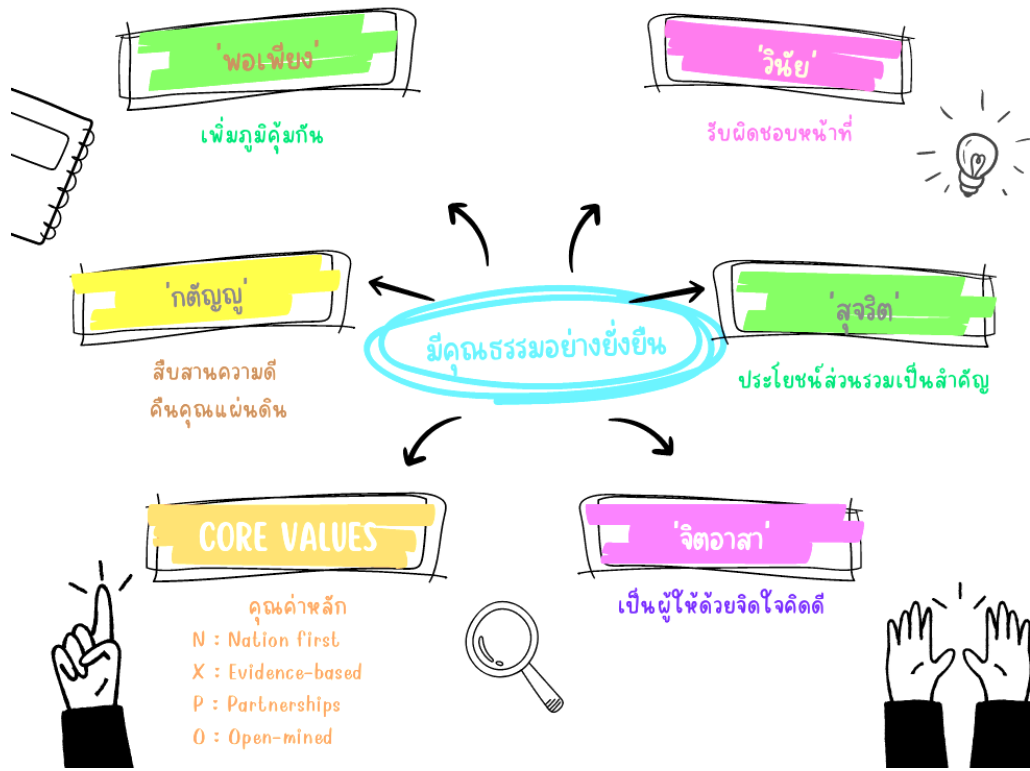 'พอเพียง'
เพิ่มภูมิคุ้มกัน
'วินัย'
รับผิดชอบหน้าที่
'กตัญญู'
สืบสานความดี
คืนคุณแผ่นดิน
มีคุณธรรมอย่างยั่งยืน
'สุจริต'
ประโยชน์ส่วนรวมเป็นสำคัญ
CORE VALUES
คุณค่าหลัก
N : Nation first
X : Evidence-based
P : Partnerships
O : Open-mined
'จิตอาสา'
เป็นผู้ให้ด้วยจิดใจคิดดี